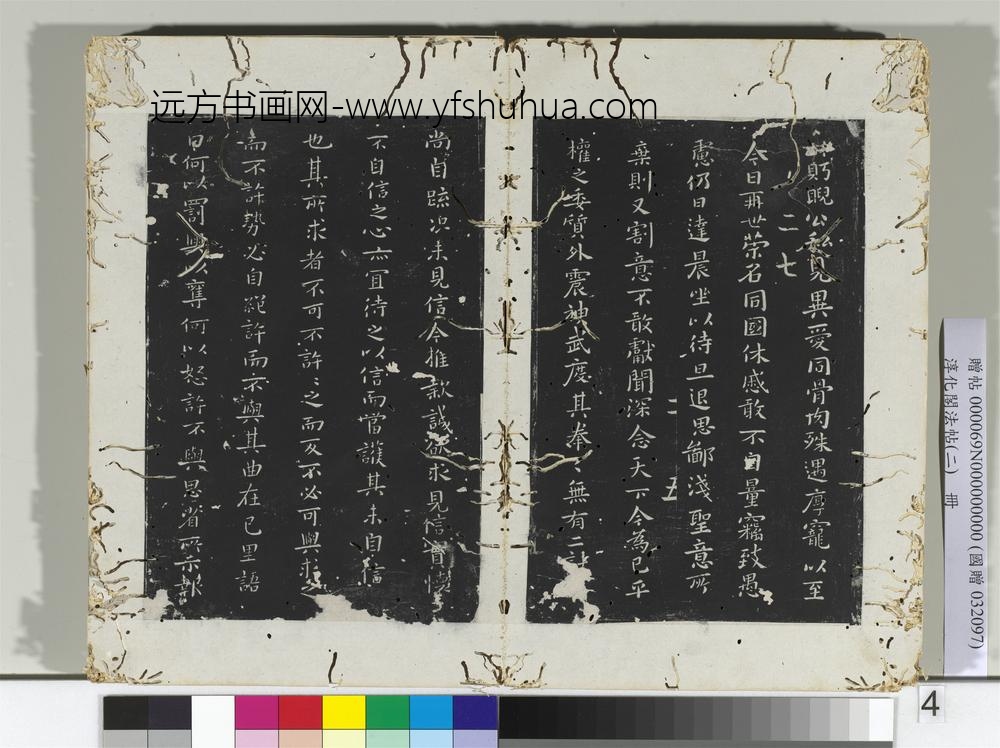 远方书画网-www.yfshuhua.com
眄睨公私見異愛同骨肉殊遇厚寵以至
二七
今日再世榮名同國休慼敢不自量竊致愚
慮仍日達晨坐以待旦退思鄙淺聖意所
二五
棄則又割意不敢獻聞深念天下今為已平
權之委質外震神武度其拳〻無有二計
尚自疏況未見信今推款誠欲求見信實懷
不自信之心亦宜待之以信而當護其未自信
也其所求者不可不許〻之而反不必可與求之
而不許勢必自絕許而不與其曲在己里語
曰何以罰與以奪何以怒許不與思省所示報
贈帖 000069N000000000 (國贈 032097)
淳化閣法帖(二) 冊
4